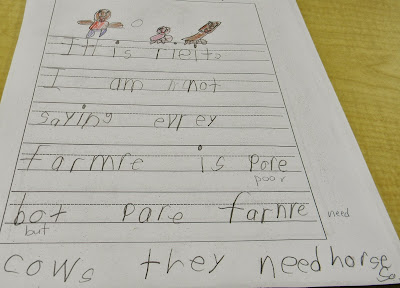 It is rieits
I am not
saying evrey
farmre is pore
poor
bot pare farnre need
but
cows they need horse
so